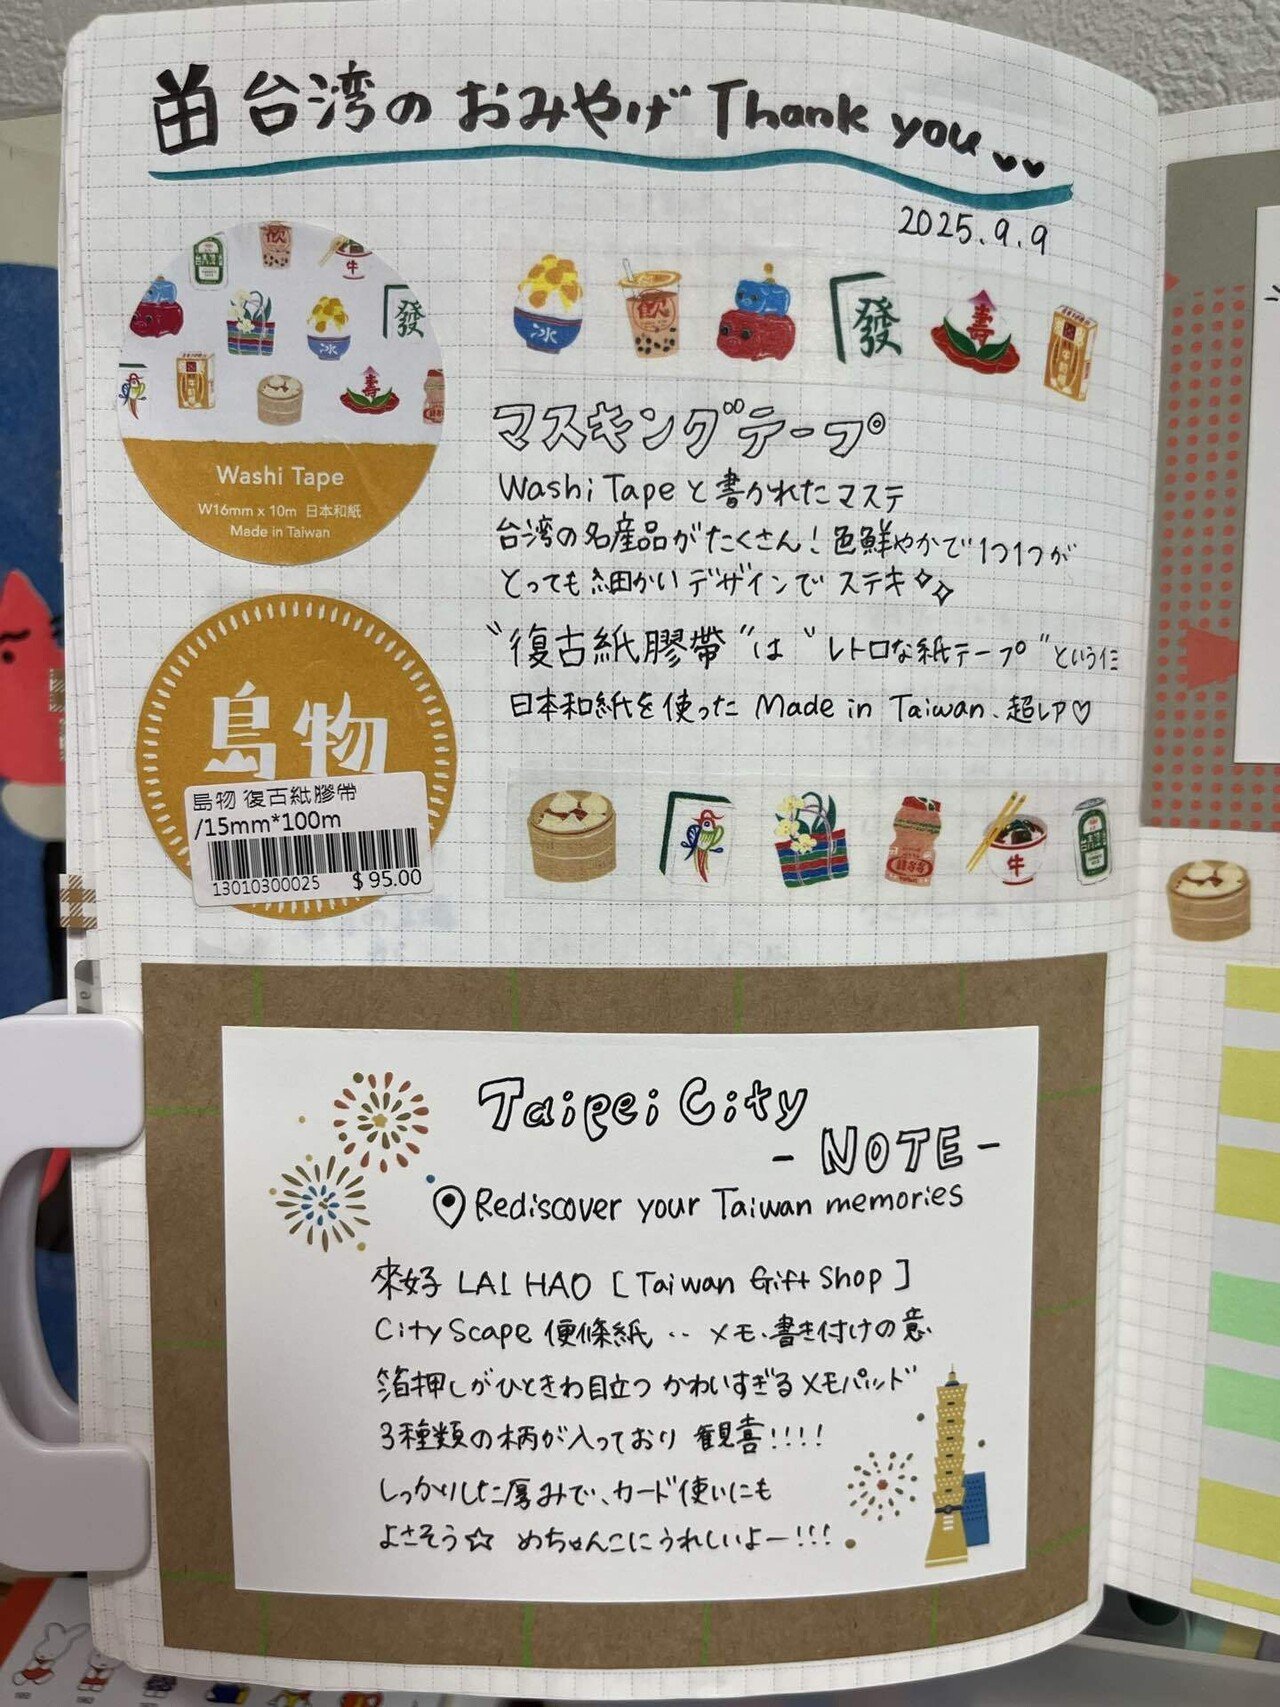 台湾の おみやげ Thank you
2025.9.9
歡
牛
冰
發
壽
Washi Tape
W16mm x 10m 日本和紙
Made in Taiwan
冰
歡
發
壽
マスキングテープ
Washi Tape と書かれたマステ
台湾の名産品がたくさん! 色鮮やかで 1つ1つが
とっても細かいデザインで ステキ
"復古紙膠帶"は "レトロな紙テープ"という
日本和紙を使った Made in Taiwan、超レア♡
島物
島物 復古紙膠帶
/15mm*100m
13010300025 $ 95.00
牛
Taipei City
- NOTE -
Rediscover your Taiwan memories
來好 LAI HAO [Taiwan Gift Shop]
City Scape 便條紙 ‥ メモ、書き付けの意
箔押しがひときわ目立つ かわいすぎるメモパッド
3種類の柄が入っており 観喜!!!!
しっかりした厚みで、カード使いにも
よさそう☆ めちゃんこにうれしいよー!!!